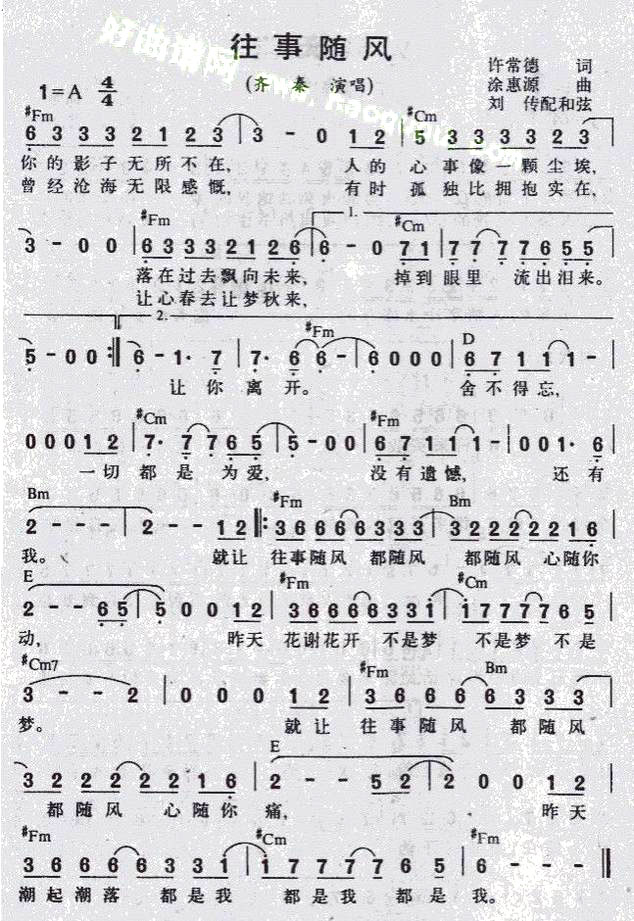 往事随风
(齐 秦 演唱)
许常德 词
涂惠源 曲
刘 传配和弦
1=A 4/4
#Fm #Cm
6 3 3 3 2 1 2 3 | 3 - 0 1 2 | 5 3 3 3 3 3 2 3 |
你的影子无所不在, 人的 心事像一颗尘埃,
曾经沧海无限感慨, 有时 孤独比拥抱实在,
#Fm 1. #Cm
3 - 0 0 | 6 3 3 3 2 1 2 6 | 6 - 0 7 1 | 7 7 7 7 7 6 5 5 |
落在过去飘向未来, 掉到 眼里 流出泪来。
让心春去让梦秋来,
2. #Fm D
5 - 0 0 :‖ 6 - 1· 7 | 7· 6 6 - | 6 0 0 0 0 | 6 7 1 1 1 - |
让你 离开。 舍不得忘,
#Cm #Fm
0 0 0 1 2 | 7· 7 7 6 5 | 5 - 0 0 | 6 7 1 1 1 - | 0 0 1· 6 |
一切 都是 为爱, 没有遗憾, 还有
Bm #Fm Bm
2 - - - | 2 - - 1 2 ‖: 3 6 6 6 6 3 3 3 | 3 2 2 2 2 2 1 6 |
我。 就让 往事随风 都随风 都随风 心随你
E #Fm #Cm
2 - - 6 5 | 5 0 0 1 2 | 3 6 6 6 6 3 3 1 | 1 7 7 7 7 6 5 |
动, 昨天 花谢花开 不是梦 不是梦 不是
#Cm7 #Fm Bm
3 - - 2 | 0 0 0 1 2 | 3 6 6 6 6 3 3 3 |
梦。 就让 往事随风 都随风
E
3 2 2 2 2 2 1 6 | 2 - - 5 2 | 2 0 0 1 2 |
都随风 心随你 痛, 昨天
#Fm #Cm #Fm
3 6 6 6 6 3 3 1 | 1 7 7 7 7 6 5 | 6 - - - ‖
潮起潮落 都是我 都是我 都是我。
好曲谱网